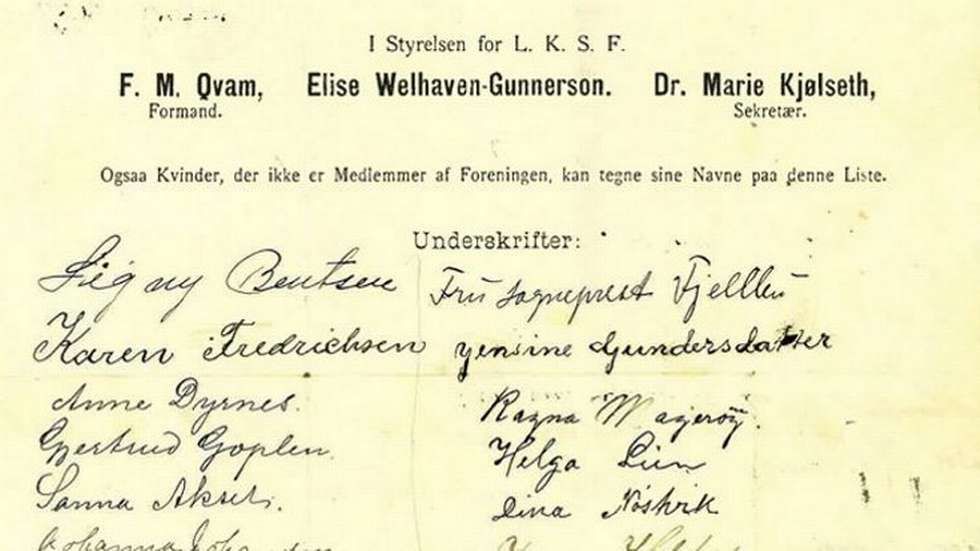 I Styrelsen for L. K. S. F.
F. M. Qvam, Elise Welhaven-Gunnerson. Dr. Marie Kjølseth,
Formand. Sekretær.
Ogsaa Kvinder, der ikke er Medlemmer af Foreningen, kan tegne sine Navne paa denne Liste.
Underskrifter:
Signy Bentsen Fru sogneprest
Karen Fredrichsen Jensine Gundersdatter
Anne Dyrnes. Ragna Magerøy.
Gjertrud Goplen. Helga Lien
Sanna Dina
Johanna